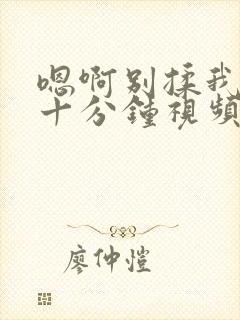 嗯啊别揉我
十分鍾視頻
廖仲愷